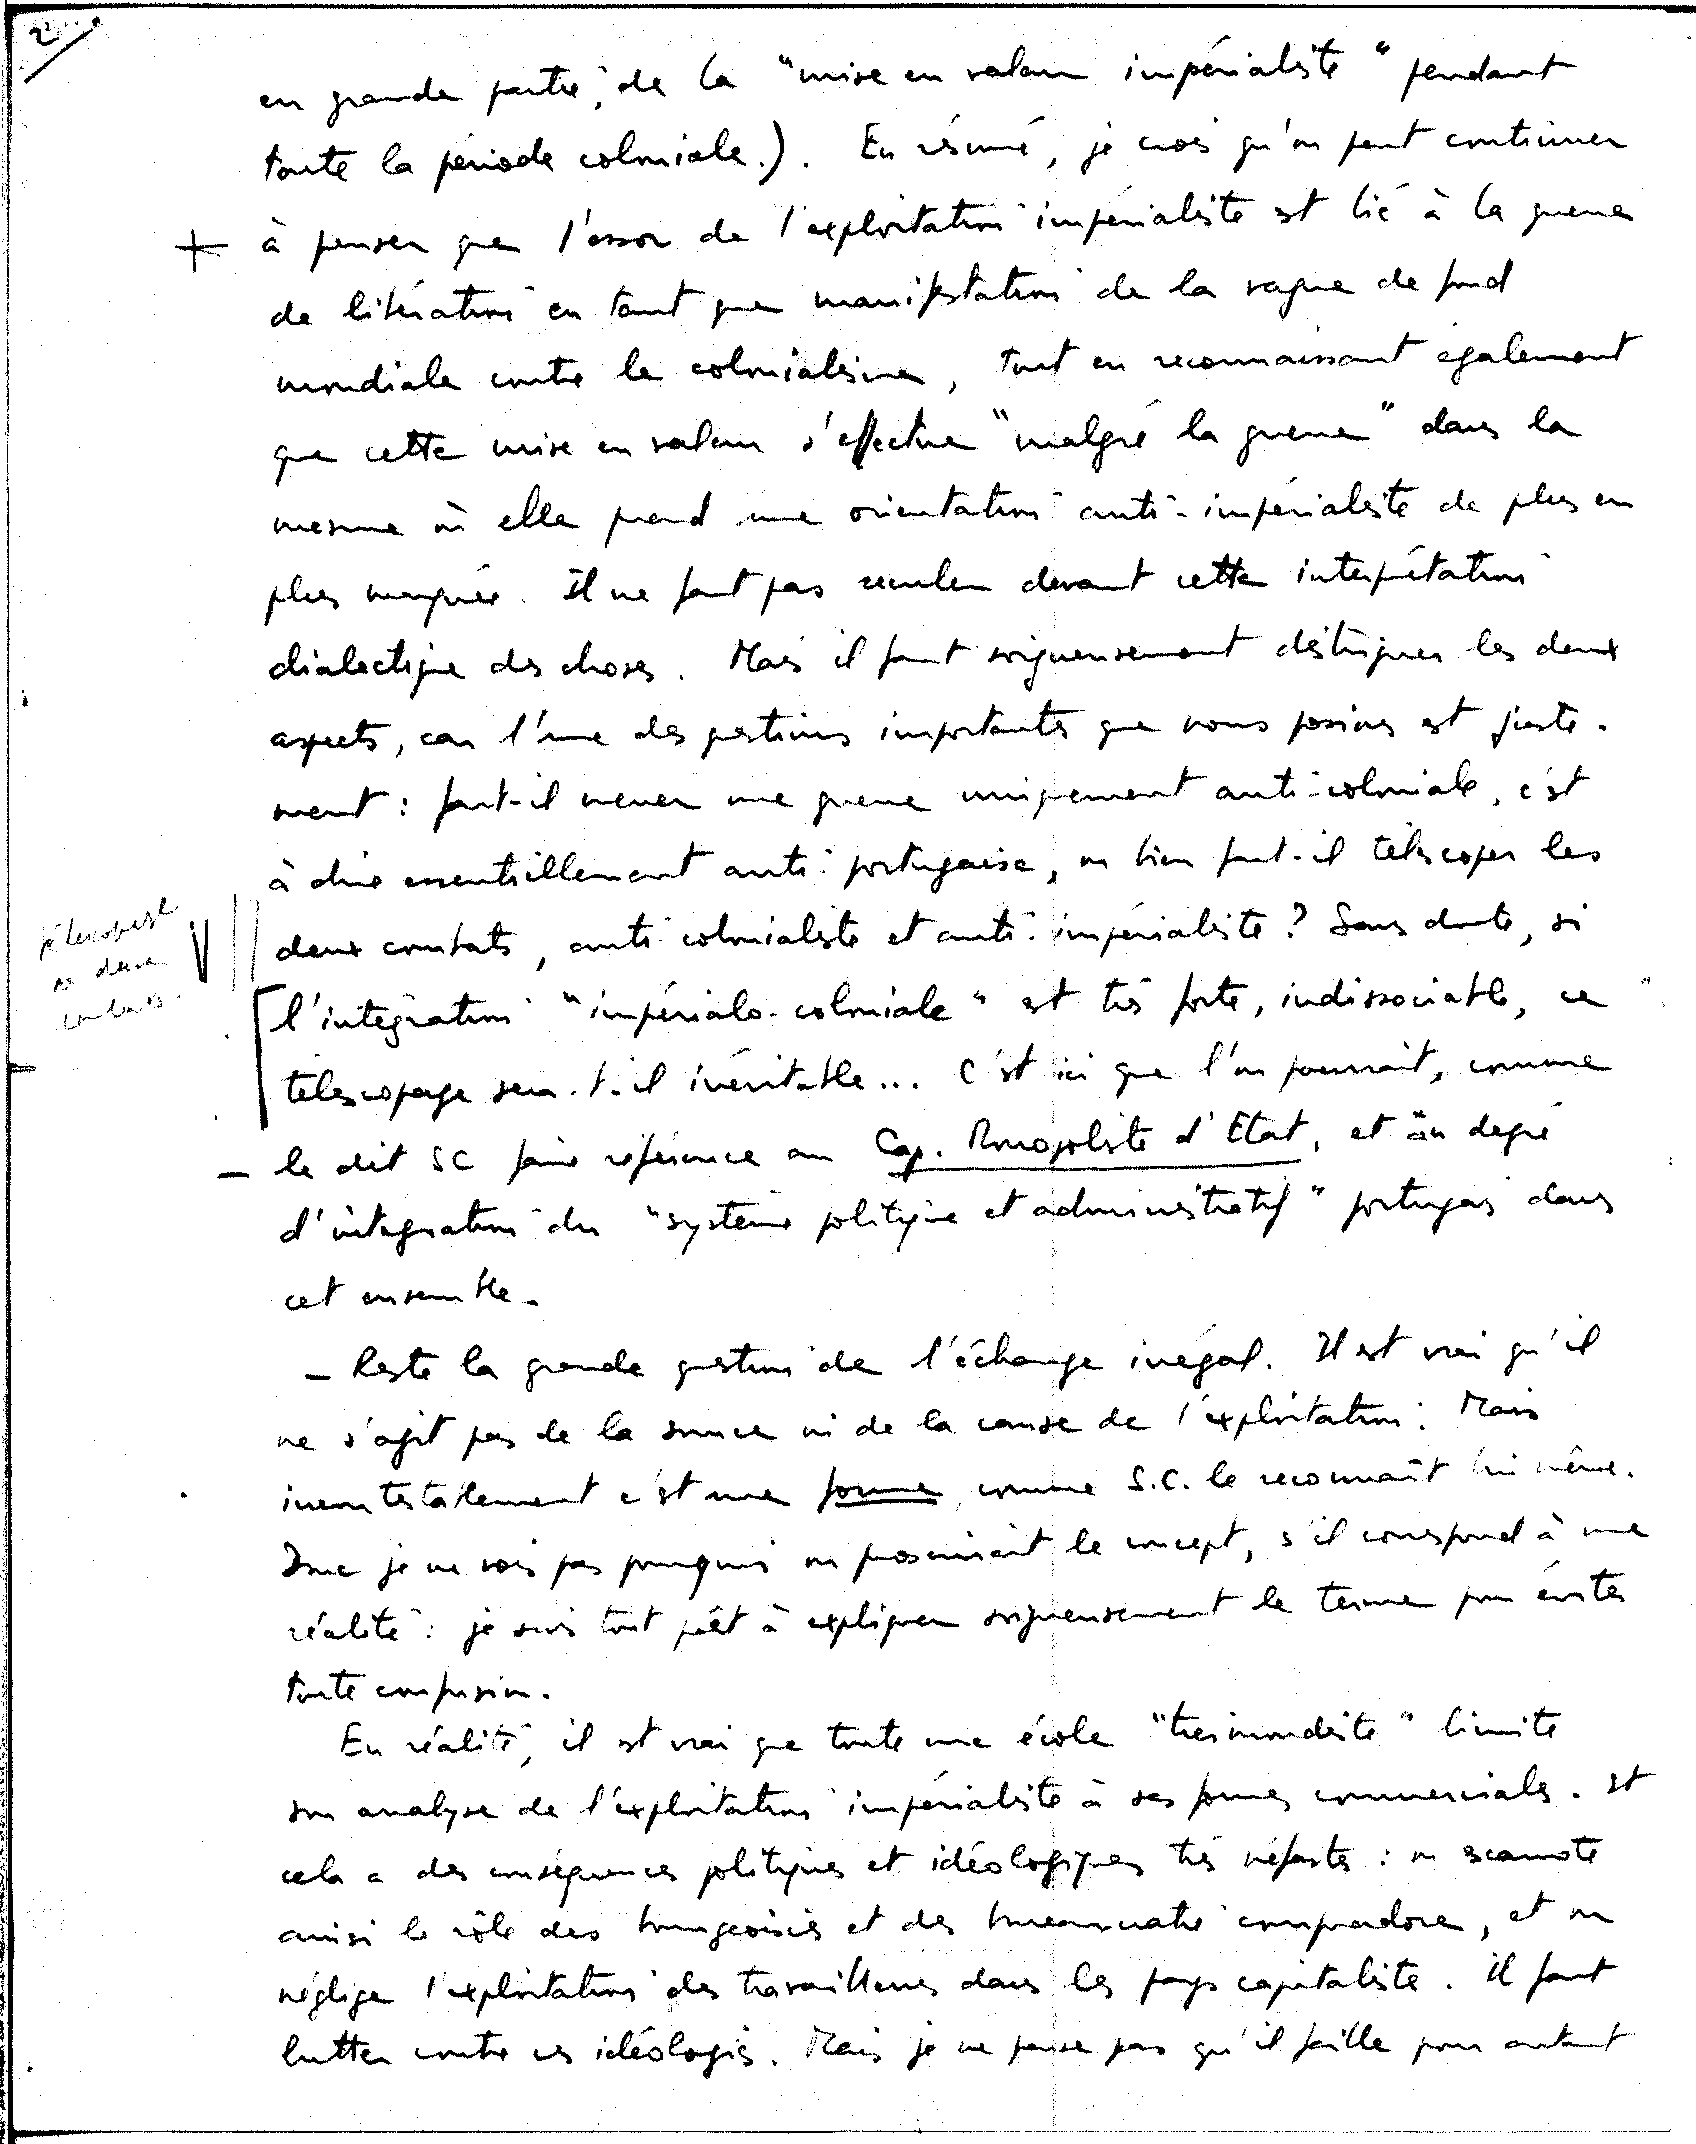 2
en grande partie, de la "mise en valeur impérialiste" pendant
toute la période coloniale.). En résumé, je crois qu'on peut continuer
+ à penser que l'essor de l'exploitation impérialiste est lié à la guerre
de libération en tant que manifestation de la vague de fond
mondiale contre le colonialisme, tout en reconnaissant également
que cette mise en valeur s'effectue "malgré la guerre" dans la
mesure où elle prend une orientation anti-impérialiste de plus en
plus marquée. Il ne faut pas reculer devant cette interprétation
dialectique des choses. Mais il faut rigoureusement distinguer les deux
aspects, car l'une des questions importantes que nous posions est juste-
ment : faut-il mener une guerre uniquement anti-coloniale, c'est
à dire essentiellement anti-portugaise, ou bien faut-il télescoper les
deux combats, anti-colonialiste et anti-impérialiste ? Sans doute, si
l'intégration "impérialo-coloniale" est très forte, indissociable, ce
télescopage sera-t-il inévitable... C'est ici que l'on pourrait, comme
– le dit SC faire référence au Cap. Monopoliste d'Etat, et au degré
d'intégration du "système politique et administratif" portugais dans
cet ensemble.
– Reste la grande question de l'échange inégal. Il est vrai qu'il
ne s'agit pas de la source ni de la cause de l'exploitation. Mais
incontestablement c'est une forme, comme S.C. le reconnaît lui même.
Donc je ne vois pas pourquoi on proscrirait le concept, s'il correspond à une
réalité : je suis tout prêt à expliquer rigoureusement le terme pour éviter
toute confusion.
En réalité, il est vrai que toute une école "tiersmondiste" limite
son analyse de l'exploitation impérialiste à ses formes commerciales. Et
cela a des conséquences politiques et idéologiques très néfastes : on escamote
ainsi le rôle des bourgeoisies et des bureaucraties compradore, et on
néglige l'exploitation des travailleurs dans les pays capitaliste. Il faut
lutter contre ces idéologies. Mais je ne pense pas qu'il faille pour autant
deux
combats